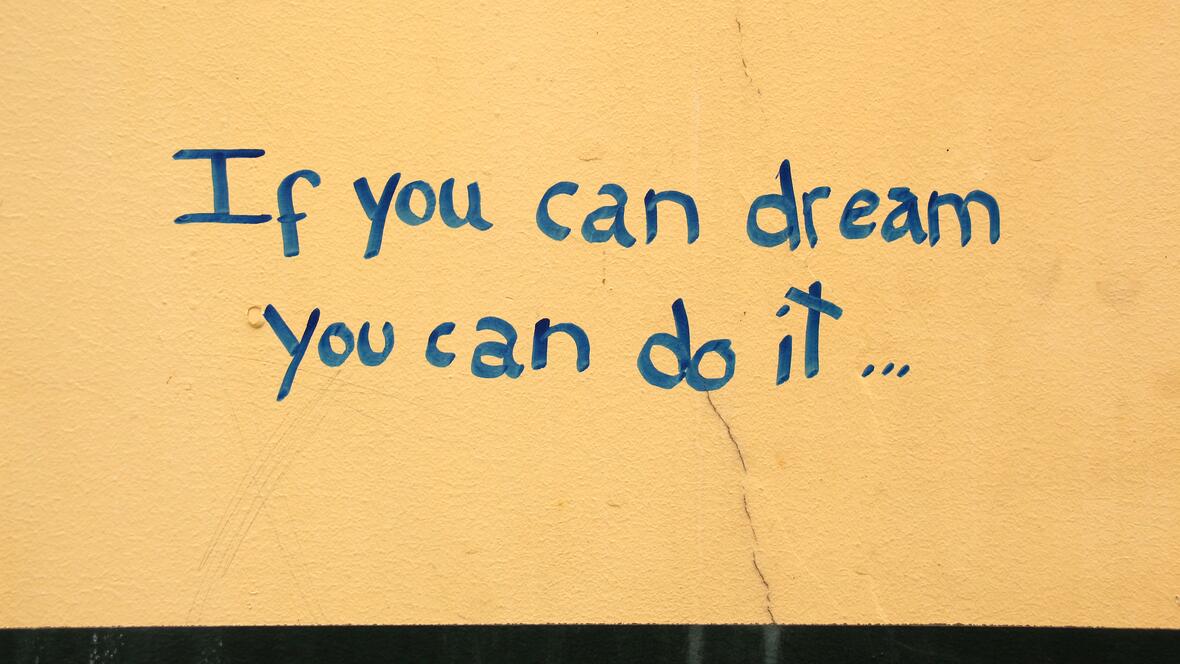 If you can dream
you can do it ...